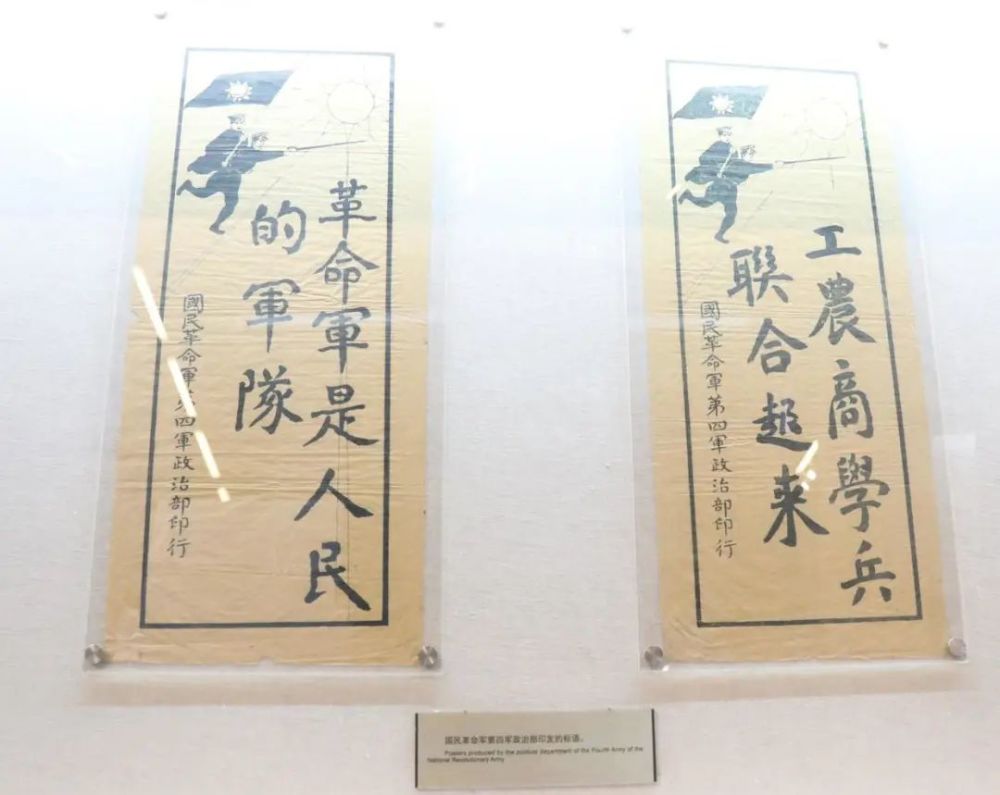 革命軍是人民
的軍隊
國民革命軍第四軍政治部印行
工農商學兵
聯合起来
國民革命軍第四軍政治部印行
国民革命军第四军政治部印发的标语。
Posters produced by the political department of the Fourth Army of the
National Revolutionary Army